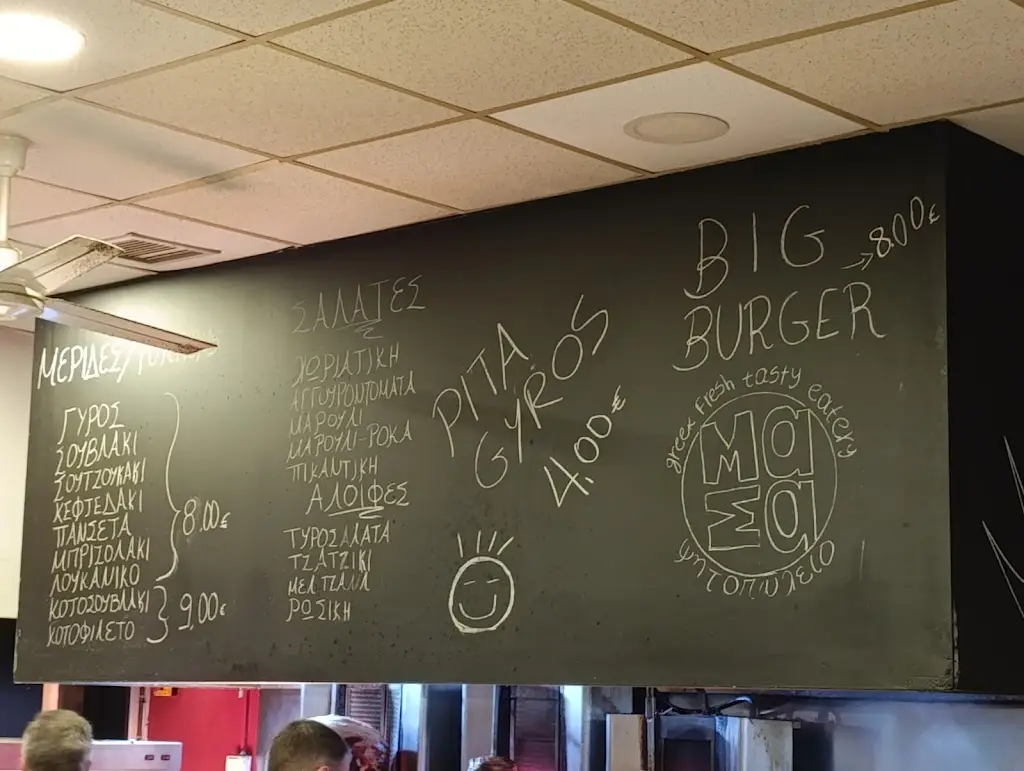 ΜΕΡΙΔΕΣ/
ΓΥΡΟΣ
ΣΟΥΒΛΑΚΙ
ΣΟΥΤΖΟΥΚΑΚΙ
ΚΕΦΤΕΔΑΚΙ
ΠΑΝΣΕΤΑ
ΜΠΡΙΖΟΛΑΚΙ
ΛΟΥΚΑΝΙΚΟ
8.00€
ΚΟΤΟΣΟΥΒΛΑΚΙ
ΚΟΤΟΦΙΛΕΤΟ
9.00€
ΣΑΛΑΤΕΣ
ΧΩΡΙΑΤΙΚΗ
ΑΓΓΟΥΡΟΝΤΟΜΑΤΑ
ΜΑΡΟΥΛΙ
ΜΑΡΟΥΛΙ-ΡΟΚΑ
ΠΙΚΑΝΤΙΚΗ
ΑΛΟΙΦΕΣ
ΤΥΡΟΣΑΛΑΤΑ
ΤΖΑΤΖΙΚΙ
ΜΕΛΙΤΖΑΝΑ
ΡΩΣΙΚΗ
PITA
GYROS
4.00€
BIG
→8.00€
BURGER
greek fresh tasty eatery
Μα
Μα
ψητοπωλείο